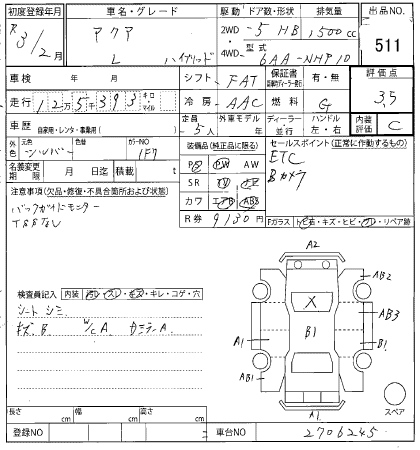 初度登録年月 車名・グレード 駆動 ドア数・形状 排気量 出品NO.
R3/2月 アクア L ハイブリッド 2WD 4WD 5 HB 1,500cc 511
型式 6AA-NHP10
車検 年 月 シフト FAT 保証書 有・無 評価点 3.5
走行 12万5千393 キロ マイル 冷房 AAC 燃料 G
車歴 自家用・レンタ・事業用( ) 定員 5人 外車モデル 年 ディーラー 並行 ハンドル 左・右 内装評価 C
外色 シルバー 色替 カラーNO 1F7 装備品(純正品に限る) セールスポイント(正常に作動するもの)
名義変更期限 月 日迄 積載 t PS PW AW ETC
注意事項(欠品・修復・不具合箇所および状態) SR TV ナビ Bカメラ
バックガイドモニター カワ エアB ABS
TSSナシ R券 9130円 Fガラス トビ石・キズ・ヒビ・ワレ・リペア跡
検査員記入 内装 汚レ・スレ・キズ・キレ・コゲ・穴
シートシミ
キズB W/CA
A2
AB2
X
A1 B1 AB3
B1
AB1
A1 スペア
長さ cm 幅 cm 高さ cm
登録NO 車台NO 2706245